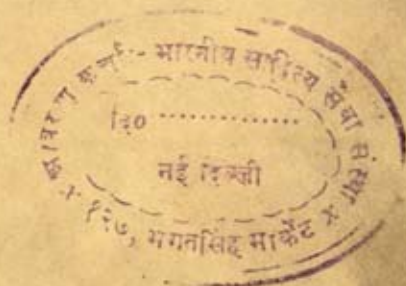 आवरण कर्त्ता - भारतीय साहित्य सेवा संस्था ×
दि० ..............
नई दिल्ली
१२७, भगतसिंह मार्केट